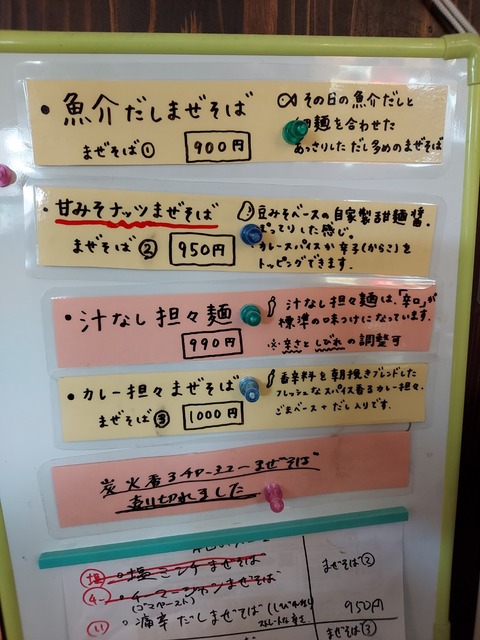 ・魚介だしまぜそば
まぜそば① 900円
その日の魚介だしと
麺を合わせた
あっさりした だし多めのまぜそば
甘みそナッツまぜそば
まぜそば② 950円
豆みそベースの自家製甜麺醤。
ってりした感じ。
カレースパイスか辛子(からこ)を
トッピングできます。
・汁なし担々麺
990円
汁なし担々麺は、「辛口」が
標準の味つけになっています。
※辛さとしびれの調整可
・カレー担々まぜそば
まぜそば③ 1000円
香辛料を朝挽きブレンドした
フレッシュなスパイス香るカレー担々。
ごまベース+だし入りです。
炭火香るチャーシューまぜそば
売り切れました
塩
まぜそば②
(ゴマペースト)
・痛辛だしまぜそば
950円
まぜそば③